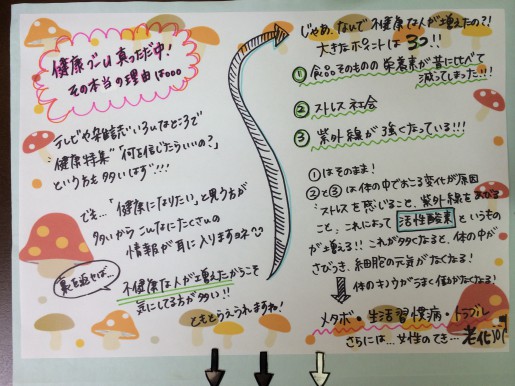 健康ブーム真っただ中!
その本当の理由は。。。
テレビや雑誌でいろいろなところで
"健康特集" "何を信じたらいいの?"
という方も多いはず!!!
でも…「健康になりたい」と思う方が
多いからこんなにたくさんの
情報が耳に入りますヨネ
裏を返せば…
不健康な人が増えたからこそ
気にしてる方が多い!!
ともとらえられますね!
じゃあ、なんで不健康な人が増えたの?!
大きなポイントは3つ!!
① 食品そのものの栄養素が昔に比べて
減ってしまった!!!
② ストレス社会
③ 紫外線が強くなっている!!!
①はそのまま!
②と③は体の中でおこる変化が原因
ストレスを感じること、紫外線をあびる
こと、これによって活性酸素というもの
が増える!!これが多くなると、体の中が
さびつき、細胞の元気がなくなる!
体のキノウがうまく働かなくなる!
メタボ・生活習慣病・トラブル
さらには…女性のてき…老化